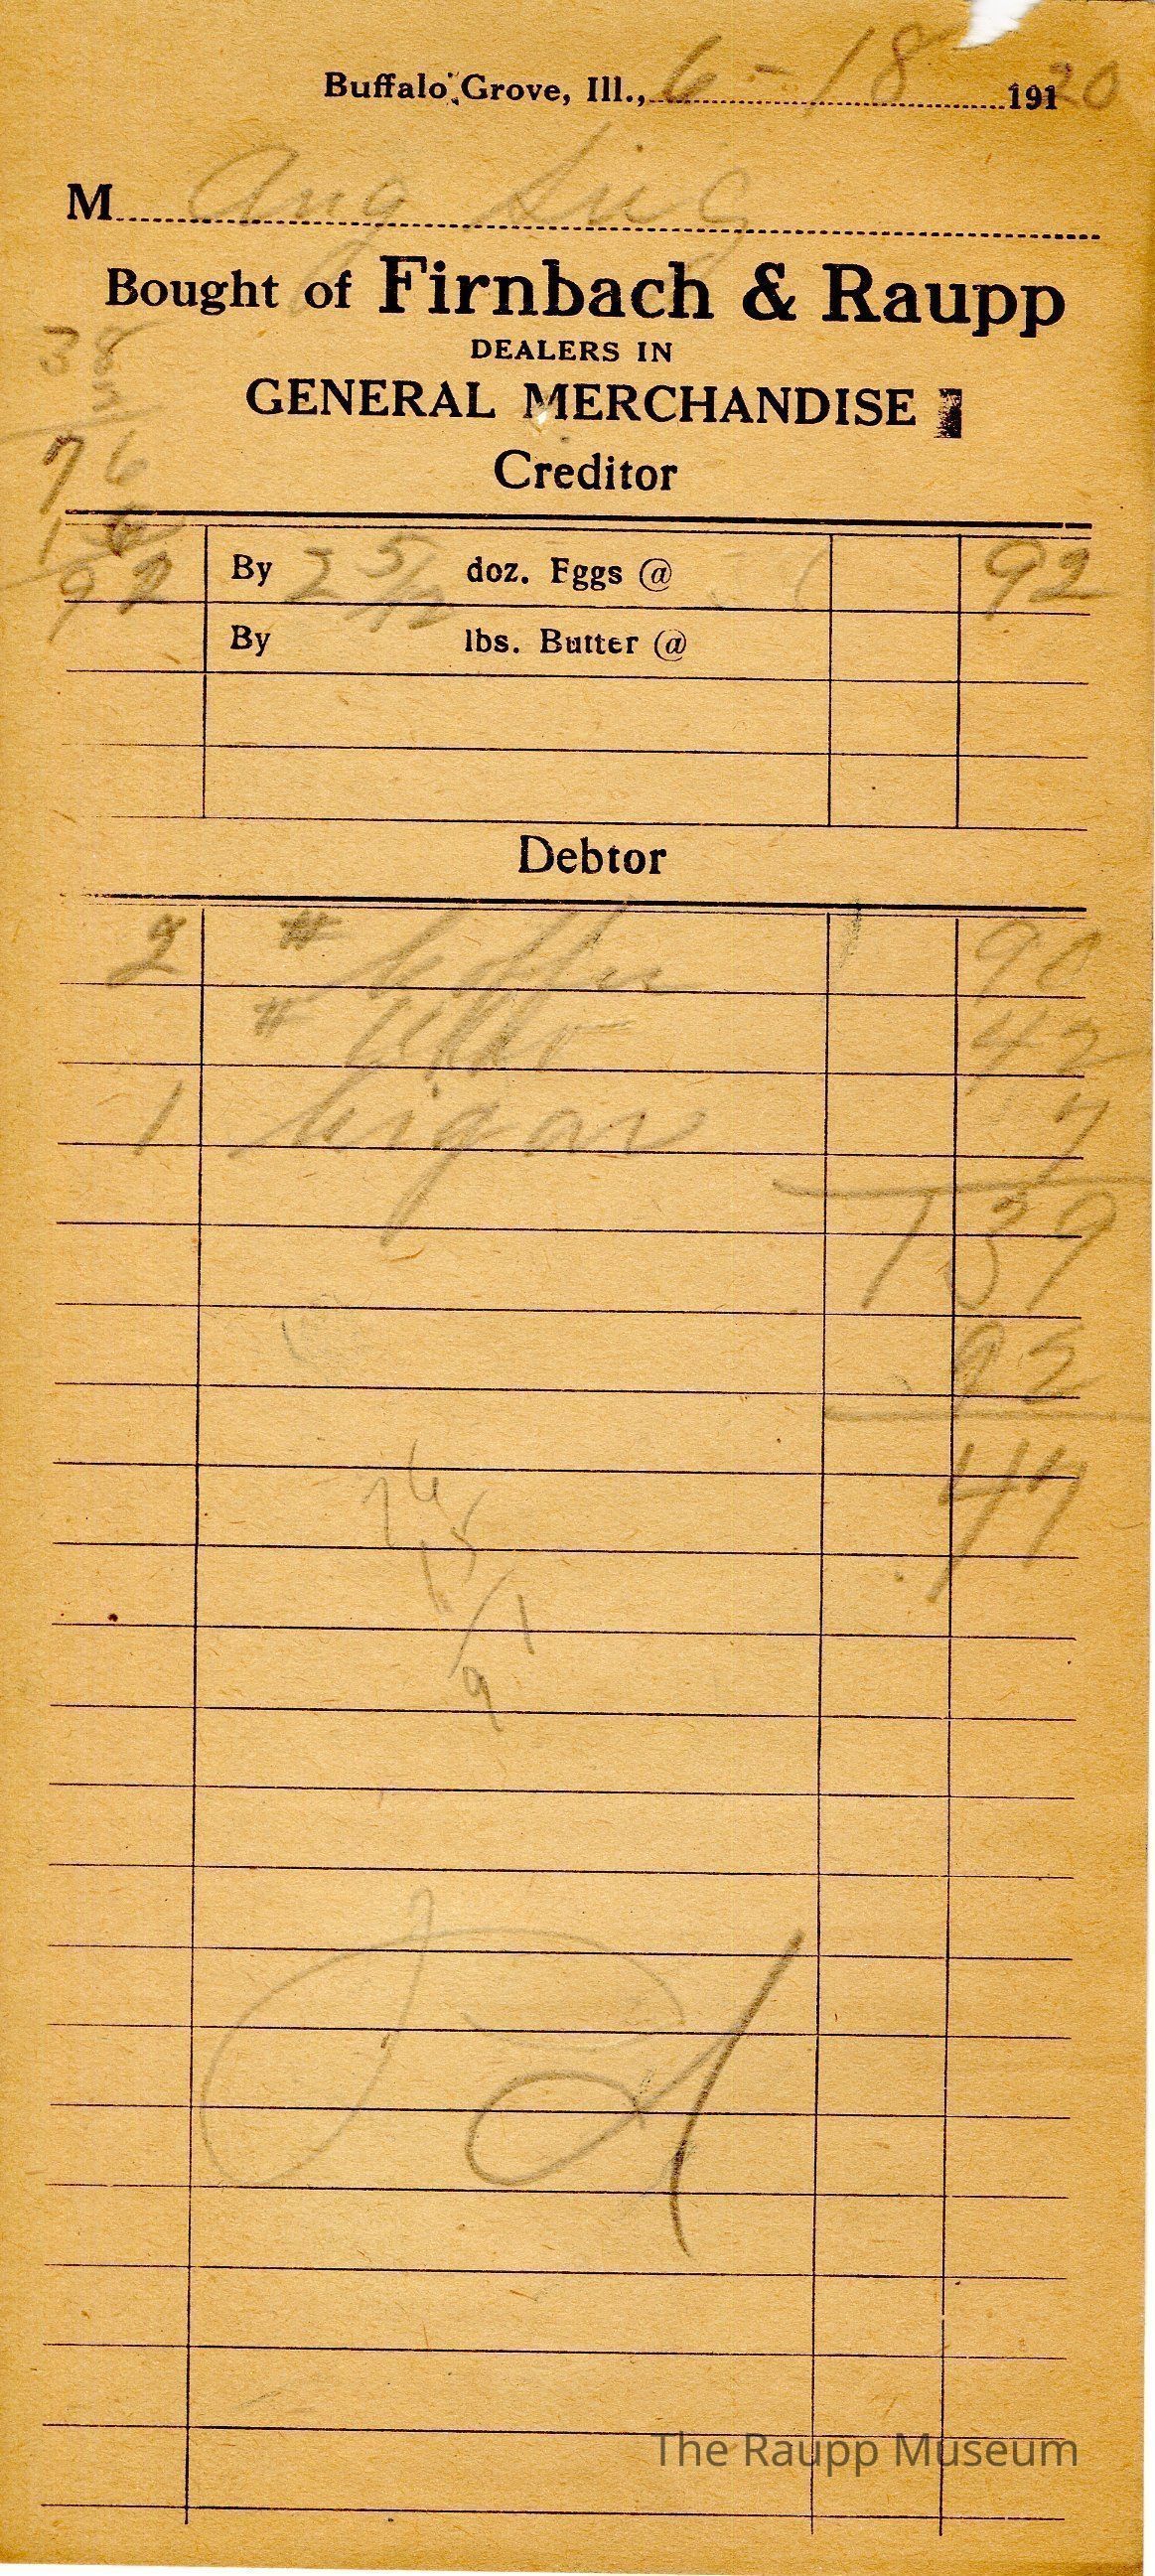 Buffalo Grove, Ill., 6-18 191 20
M Aug
Bought of Firnbach & Raupp
DEALERS IN
GENERAL MERCHANDISE
Creditor
38
2
76
16
92
By 2 5/12 doz. Eggs @ 92
By lbs. Butter @
Debtor
2 # Coffee 90
# 42
1 7
1 39
92
47
76
15
91
The Raupp Museum